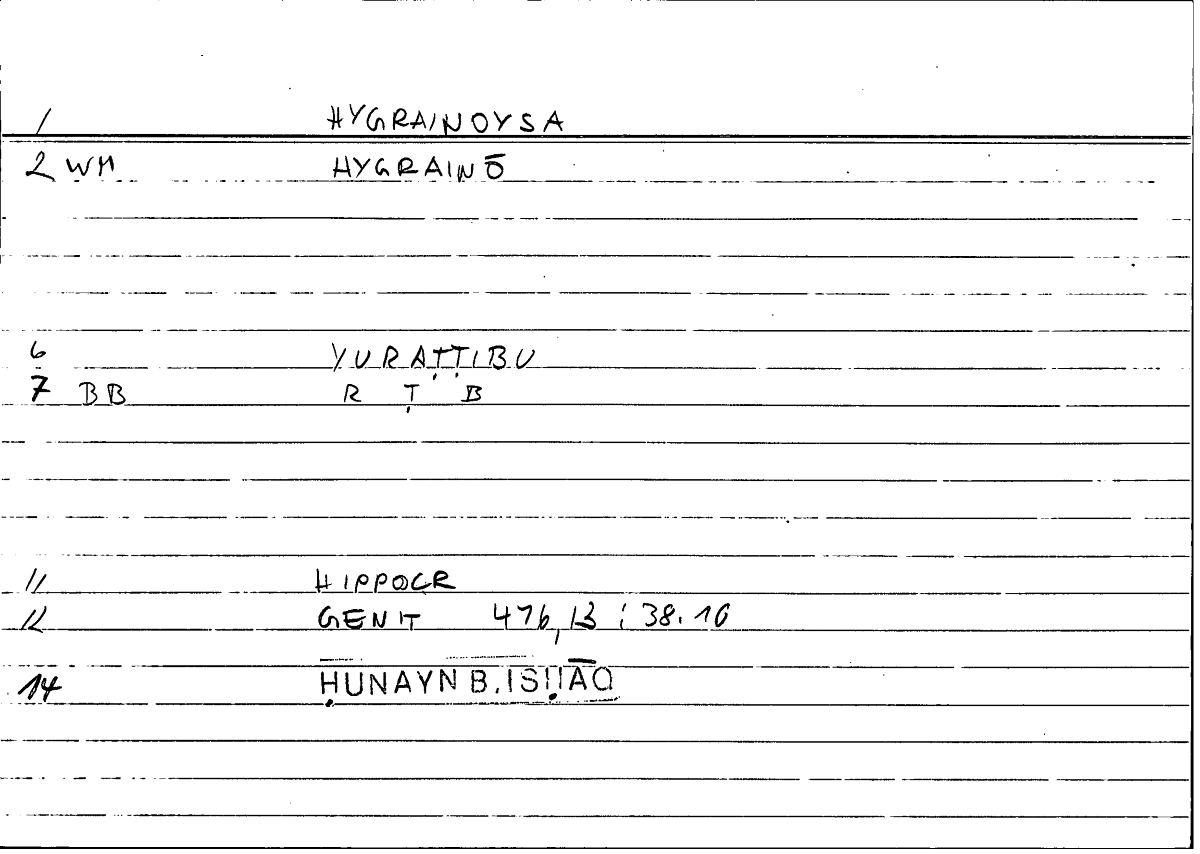 1 HYGRAINOYSA
2 WM HYGRAINŌ
6 YURAṬṬIBU
7 BB R Ṭ B
11 HIPPOCR
12 GENIT 476,13 ; 38.16
14 ḤUNAYN B. ISḤĀQ